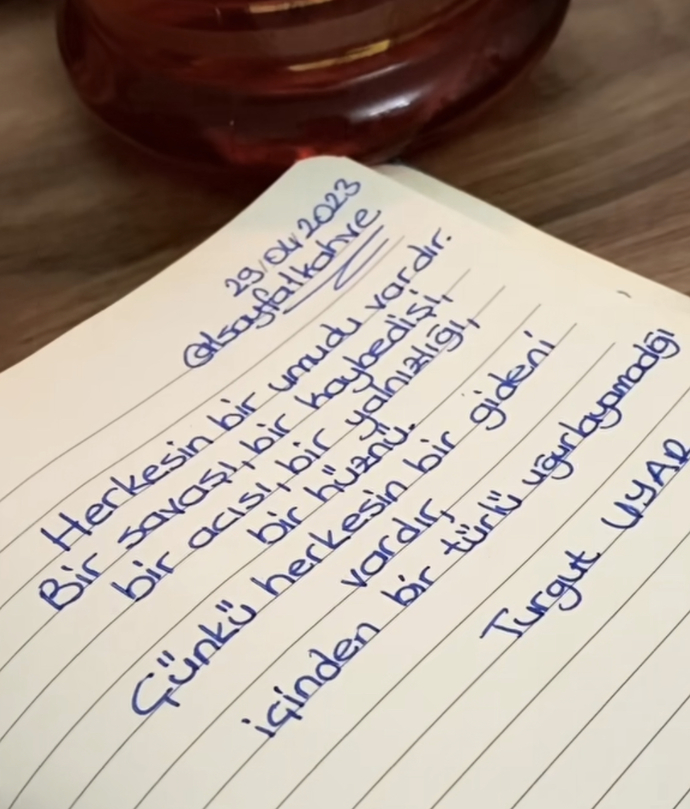 29/04/2023
@1sayfa1kahve
Herkesin bir umudu vardır.
Bir savaşı, bir kaybedişi,
bir acısı, bir yalnızlığı,
bir hüznü.
Çünkü herkesin bir gideni
vardır,
içinden bir türlü uğurlayamadığı
Turgut UYAR